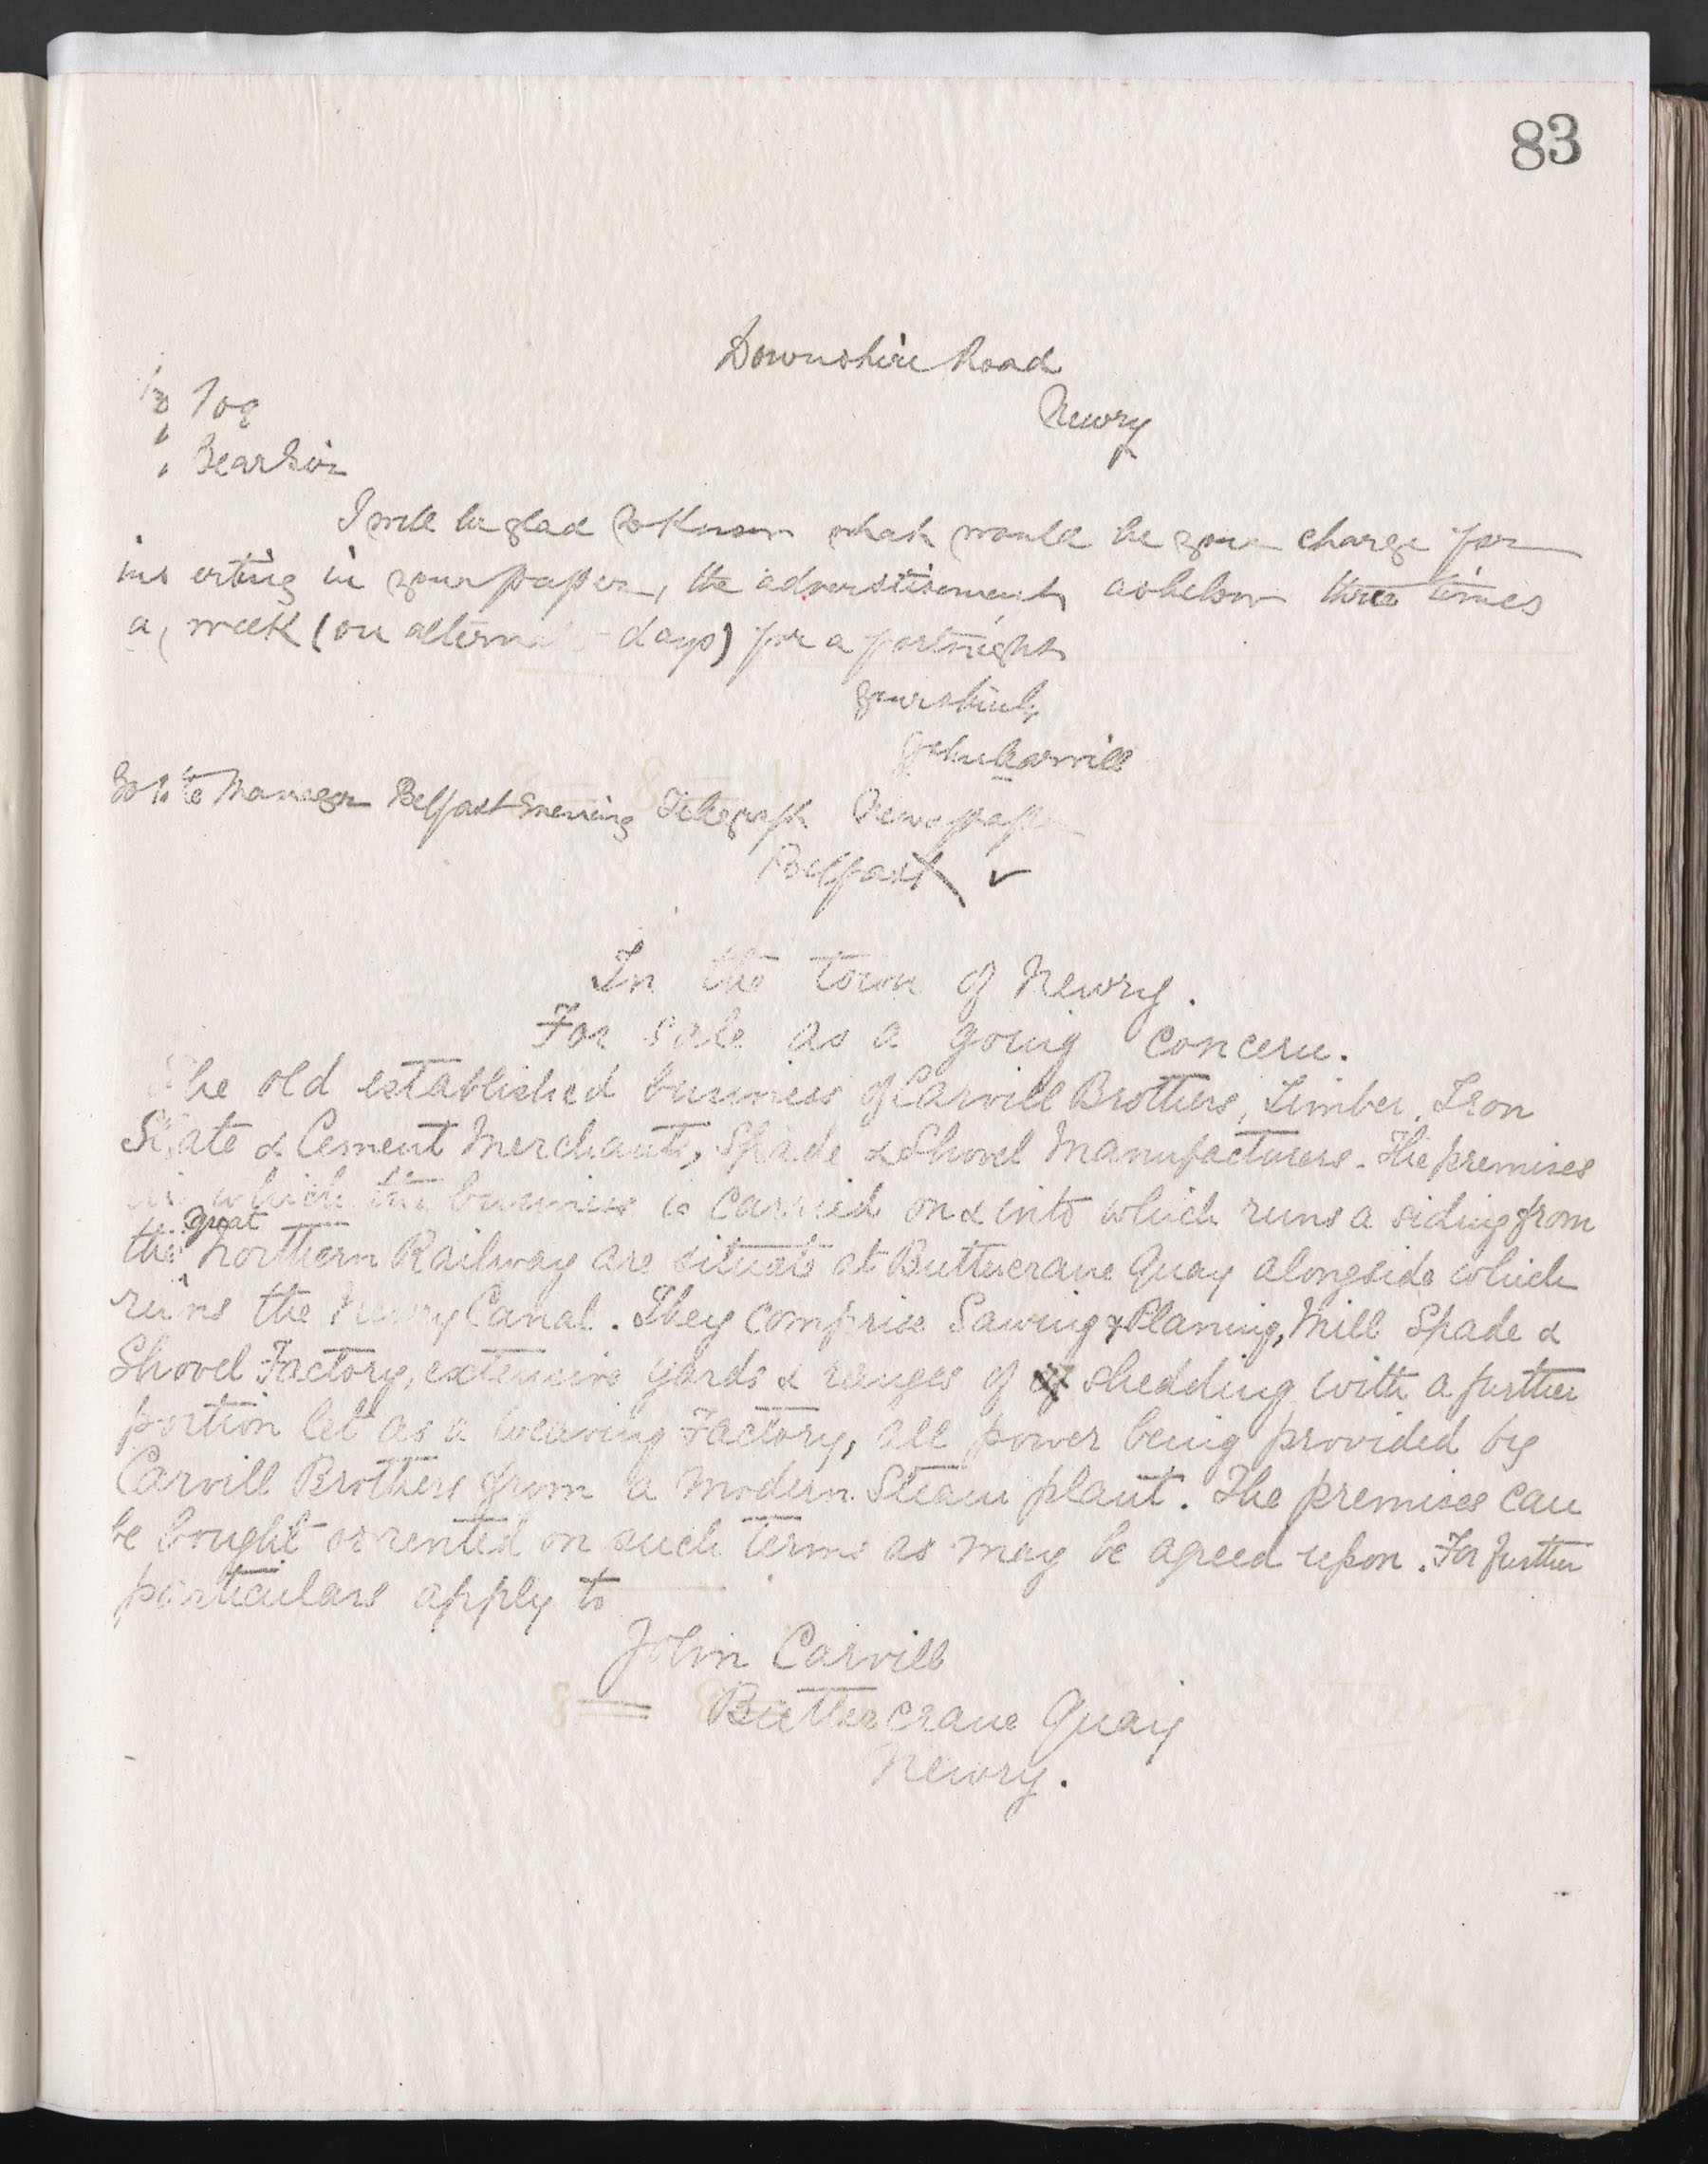 83
Downshire Road
Newry
Dear Sir
I will be glad to know what would be your charge for
inserting in your paper, the advertisement as below three times
a week (on alterna days) for a fortnight
Yours truly
John Carvill
To the Manager Belfast Evening Telegraph Newspaper
Belfast ✓
In the town of Newry.
For sale as a going concern.
The old established business of Carvill Brothers, Timber, Iron
Slate & Cement Merchants, Spade & Shovel Manufacturers. The premises
in which the business is carried on & into which runs a siding from
the Great Northern Railway are situate at Buttercrane Quay alongside which
runs the Newry Canal. They comprise Sawing & Planing, Mill Spade &
Shovel Factory, extensive yards & ranges of shedding with a further
portion let as a weaving Factory, all power being provided by
Carvill Brothers from a modern Steam plant. The premises can
be bought or rented on such terms as may be agreed upon. For further
particulars apply to
John Carvill
Buttercrane Quay
Newry.